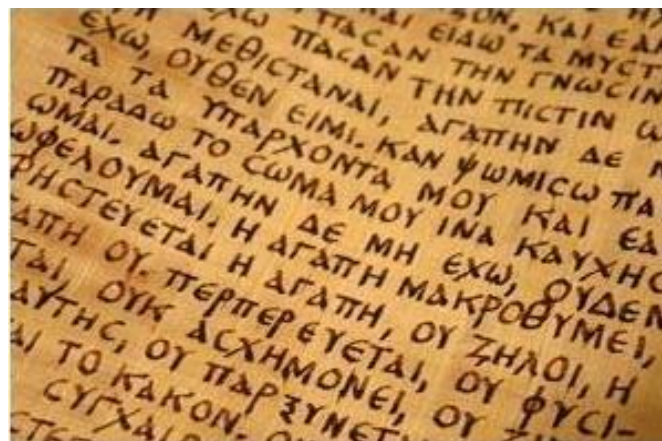 ΚΑΙ ΕΙΔΩ ΤΑ ΜΥСΤ
ΕΧΩ ΠΑСΑΝ ΤΗΝ ΓΝΩСΙΝ
ΠΑСΑΝ ΤΗΝ ΠΙСΤΙΝ Ω
ΜΕΘΙСΤΑΝΑΙ, ΑΓΑΠΗΝ ΔΕ Μ
ΕΧΩ, ΟΥΘΕΝ ΕΙΜΙ. ΚΑΝ ΨΩΜΙСΩ ΠΑ
ΤΑ ΤΑ ΥΠΑΡΧΟΝΤΑ ΜΟΥ ΚΑΙ ΕΑ
ΠΑΡΑΔΩ ΤΟ СΩΜΑ ΜΟΥ ΙΝΑ ΚΑΥΧΗС
ΩΜΑΙ. ΑΓΑΠΗΝ ΔΕ ΜΗ ΕΧΩ, ΟΥΔΕΝ
ΩΦΕΛΟΥΜΑΙ. Η ΑΓΑΠΗ ΜΑΚΡΟΘΥΜΕΙ,
ΡΗСΤΕΥΕΤΑΙ Η ΑΓΑΠΗ, ΟΥ ΖΗΛΟΙ, Η
ΑΠΗ ΟΥ. ΠΕΡΠΕΡΕΥΕΤΑΙ, ΟΥ ΦΥСΙ-
ΤΑΙ, ΟΥΚ ΑСΧΗΜΟΝΕΙ, ΟΥ
ΑΥΤΗС, ΟΥ ΠΑΡΞΥΝΕΤ
ΑΙ ΤΟ ΚΑΚΟΝ.
СΥΓΧΑΙΡ